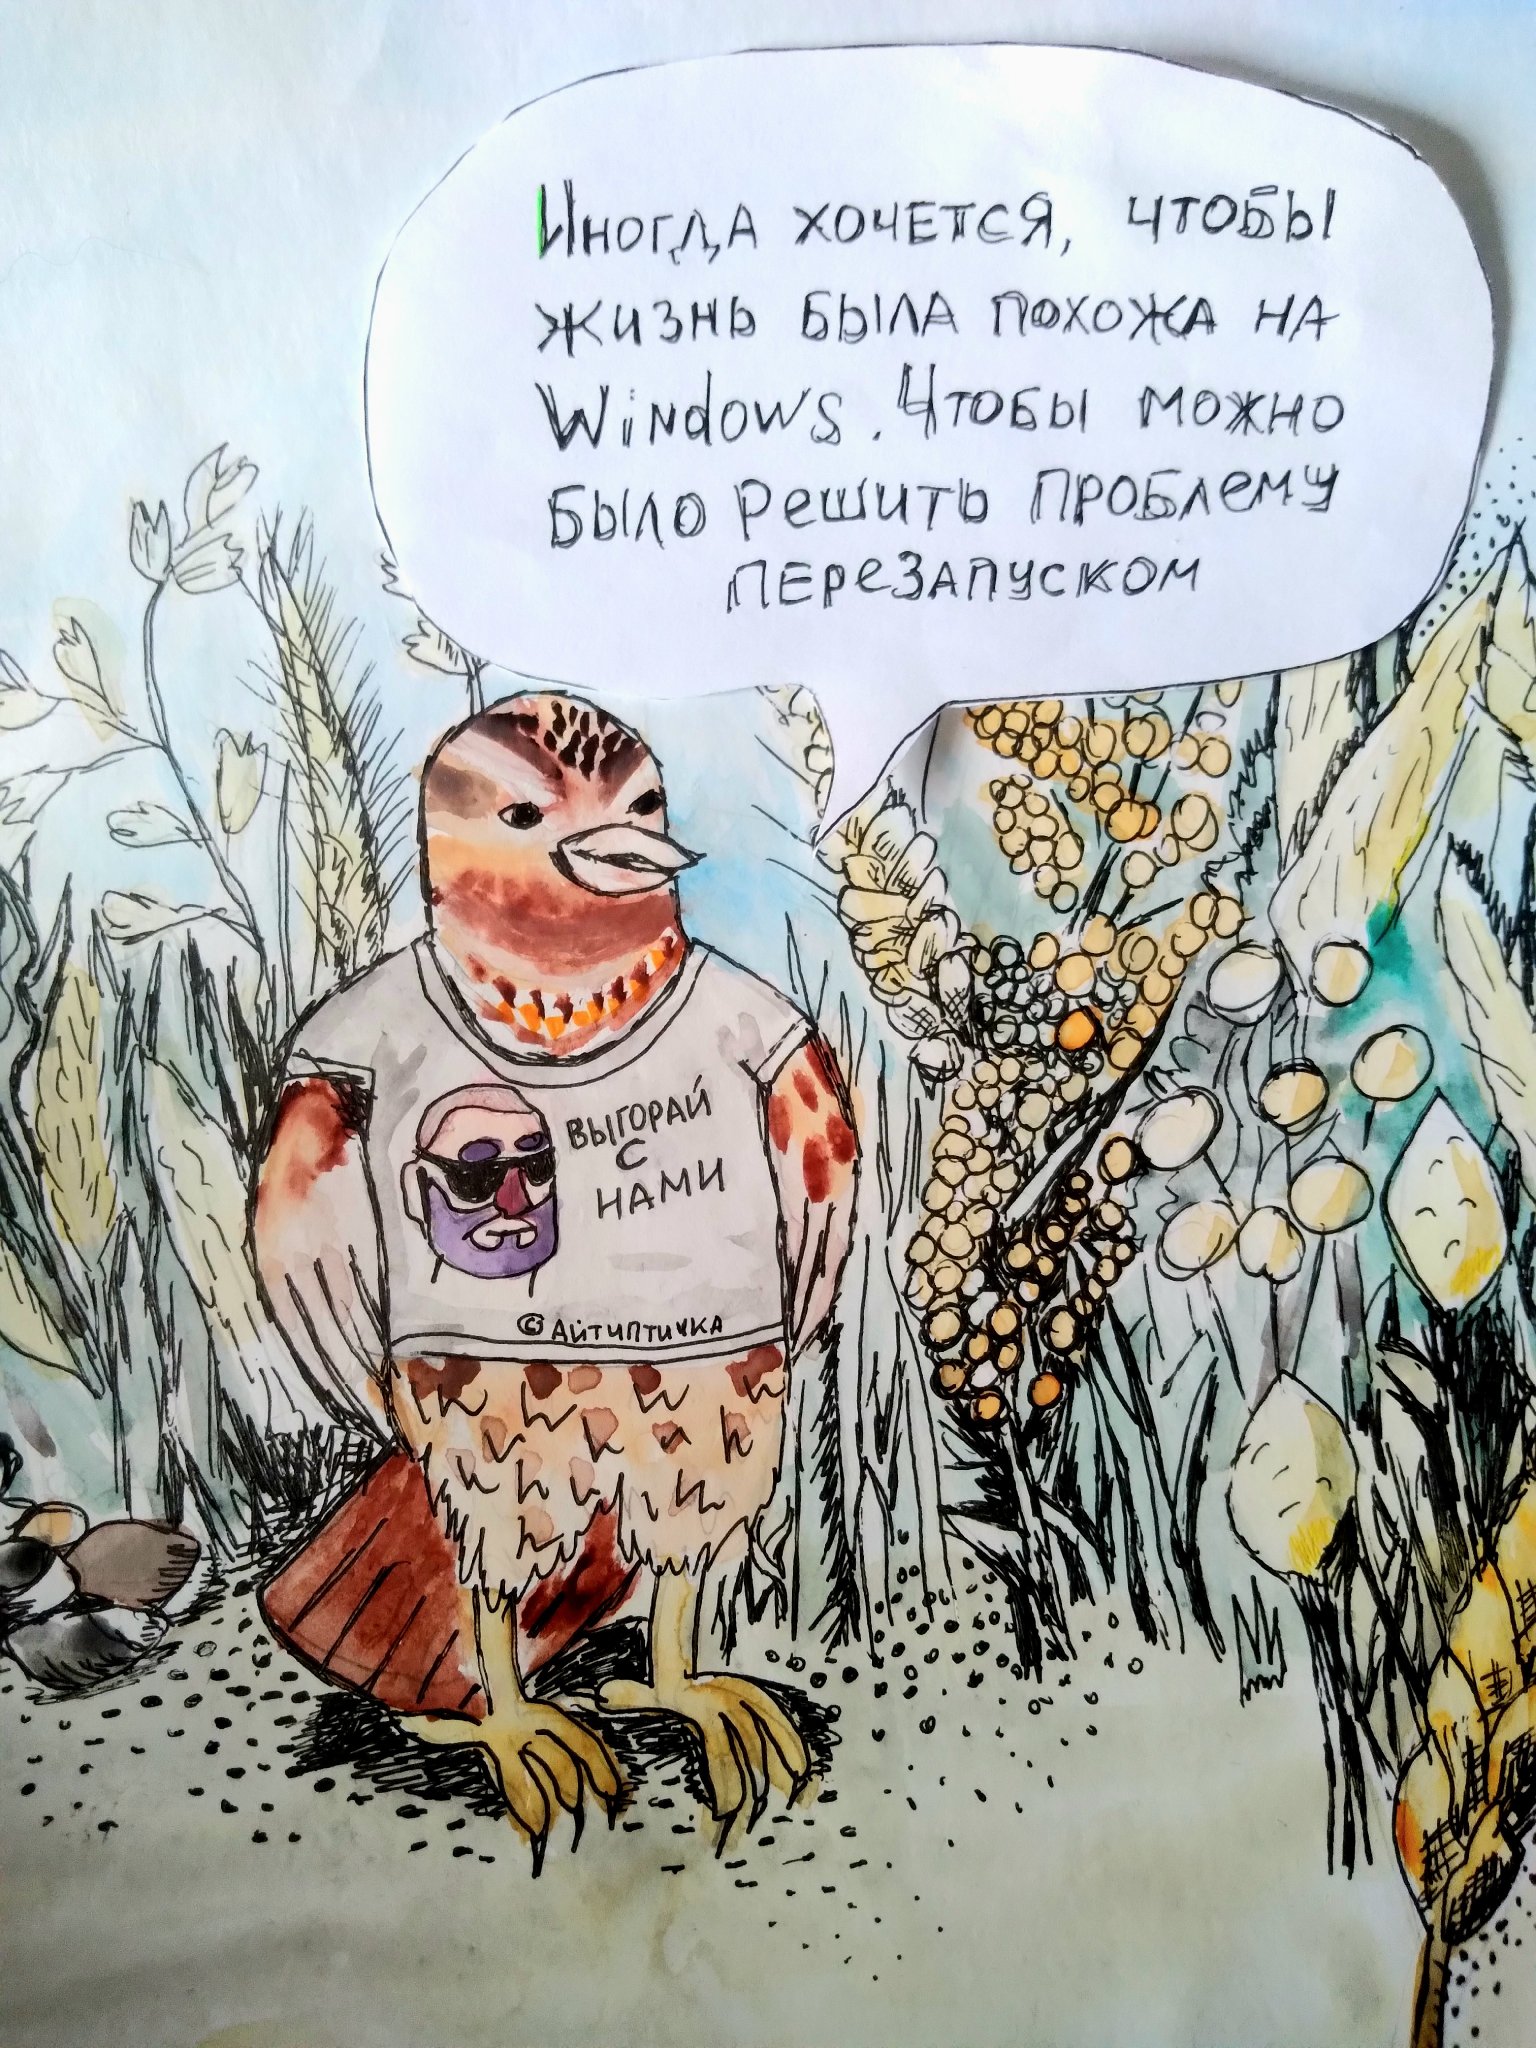 Иногда хочется, чтобы
жизнь была похожа на
Windows. Чтобы можно
было решить проблему
перезапуском
ВЫГОРАЙ
С
НАМИ
© АЙТИПТИЧКА